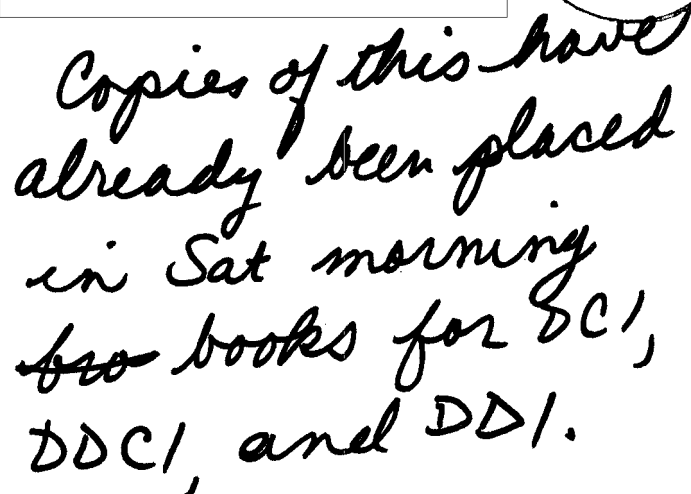 Copies of this have
already been placed
in Sat morning
bro books for DCI,
DDCI, and DDI.